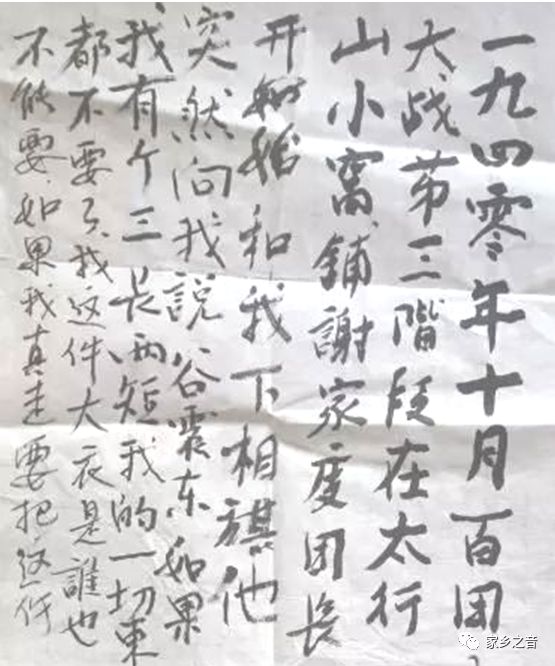 一九四零年十月百团
大战第三階段在太行
山小窝铺謝家度团长
开始和我下相棋他
突然向我說谷震东如果
我有个三长两短我的一切东
都不要了我这件大衣是誰也
不能要如果我真走要把这件
家乡之音